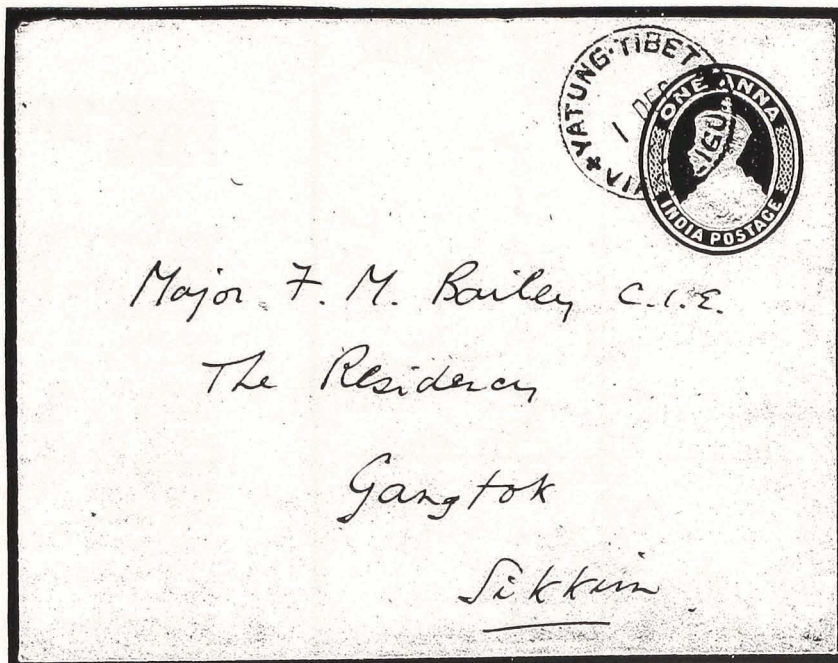 YATUNG·TIBET
1 DEC
VIA
ONE ANNA
INDIA POSTAGE
Major F. M. Bailey C.I.E.
The Residency
Gangtok
Sikkim